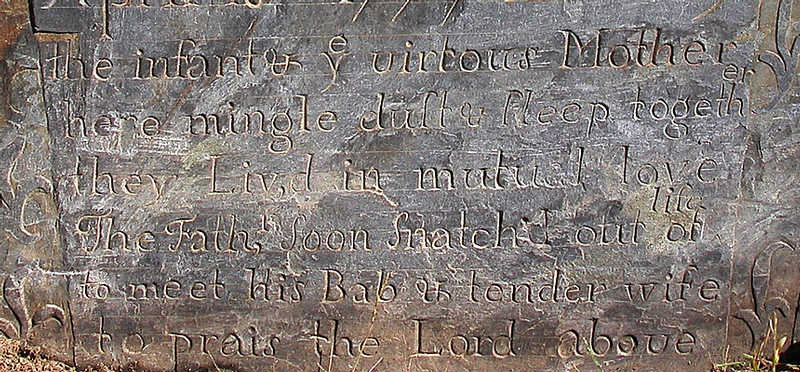 the infant & yᵉ virtous Mother
here mingle dust & sleep together
they Liv,d in mutual love
The Fath,ʳ soon snatch'd out of life
to meet his Bab & tender wife
to prais the Lord above